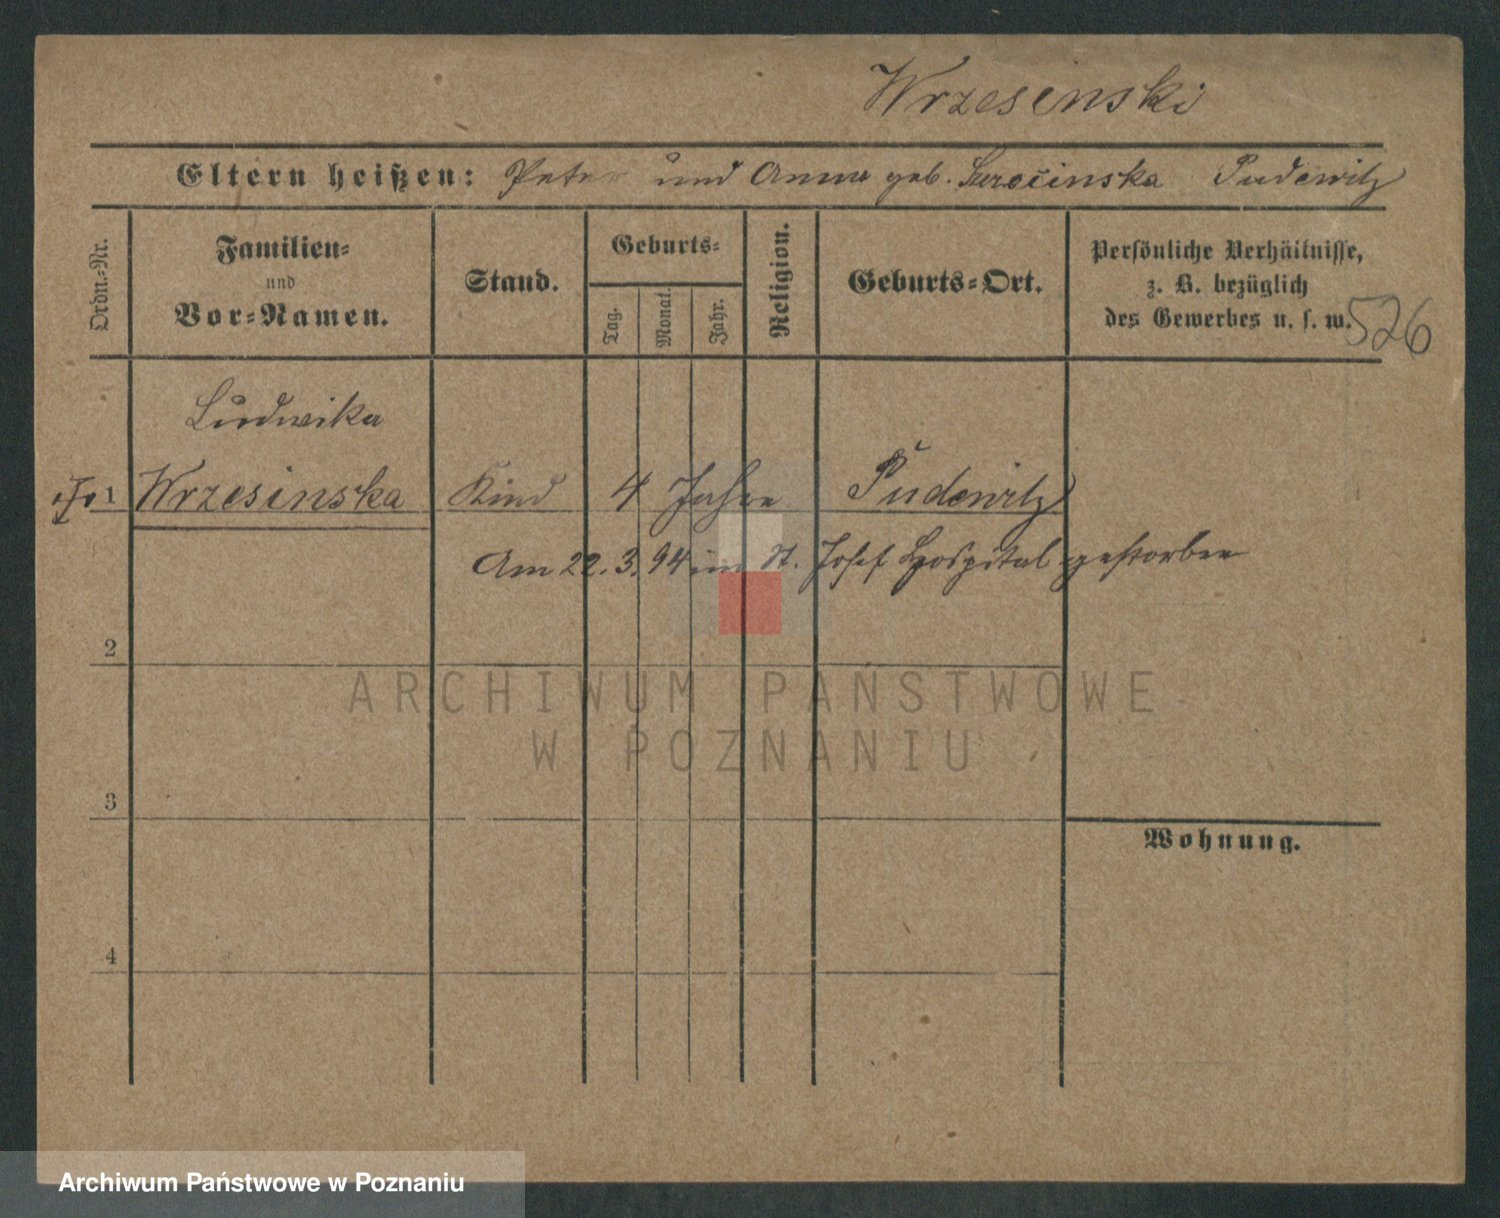 Wrzesinski
Eltern heißen: Peter und Anna geb. Pudewitz
Ordn.-Nr.
Familien-
und
Vor-Namen.
Stand.
Geburts-
Tag.
Monat.
Jahr.
Religion.
Geburts-Ort.
Persönliche Verhältnisse,
z. B. bezüglich
des Gewerbes u. s. w.
526
Ludwika
1 Wrzesinska Kind 4 Jahre Pudewitz
Am 22. 3. 94 im St. Josef Hospital gestorben
2
3
Wohnung.
4
ARCHIWUM PAŃSTWOWE
W POZNANIU
Archiwum Państwowe w Poznaniu